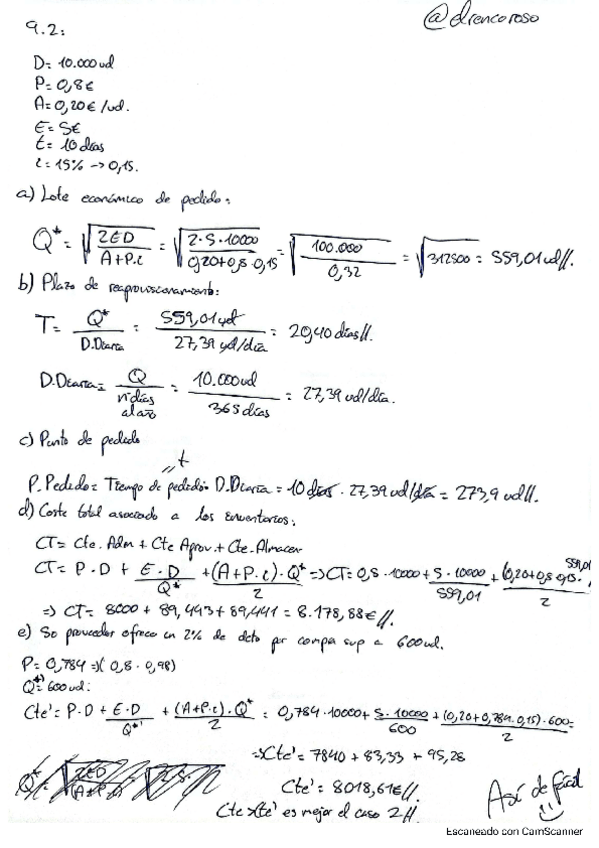 @drencoroso
9.2:
D= 10.000 ud
P= 0,8€
A= 0,20€/ud.
E= 5€
t= 10 días
i= 15% -> 0,15.
a) Lote económico de pedido:
Q* = √(2ED / A+P.i) = √(2·5·10000 / 0,20+0,8·0,15) = √(100.000 / 0,32) = √312500 = 559,01 ud//.
b) Plazo de reaprovisionamiento:
T= Q* / D.Diaria = 559,01 ud / 27,39 ud/día = 20,40 días//.
D.Diaria = Q / nº días al año = 10.000 ud / 365 días = 27,39 ud/día.
c) Punto de pedido
// t
P.Pedido= Tiempo de pedido· D.Diaria = 10 días · 27,39 ud/día = 273,9 ud//.
d) Coste total asociado a los inventarios:
CT= Cte. Adm + Cte Aprov + Cte. Almacen
CT= P·D + E·D / Q* + (A+P.i)·Q* / 2 => CT= 0,8·10000 + 5·10000 / 559,01 + (0,20+0,8·0,15)· 559,01 / 2
=> CT= 8000 + 89,443 + 89,441 = 8.178,88€//.
e) So proveedor ofrece un 2% de dcto por compra sup a 600 ud.
P= 0,784 =>( 0,8·0,98)
Q*'= 600 ud:
Cte'= P·D + E·D / Q*' + (A+P.i)·Q* / 2 = 0,784·10000 + 5·10000 / 600 + (0,20+0,784·0,15)·600 / 2 =
=> Cte'= 7840 + 83,33 + 95,28
Cte'= 8018,61€//.
Cte > Cte' es mejor el caso 2//.
Así de fácil
Escaneado con CamScanner